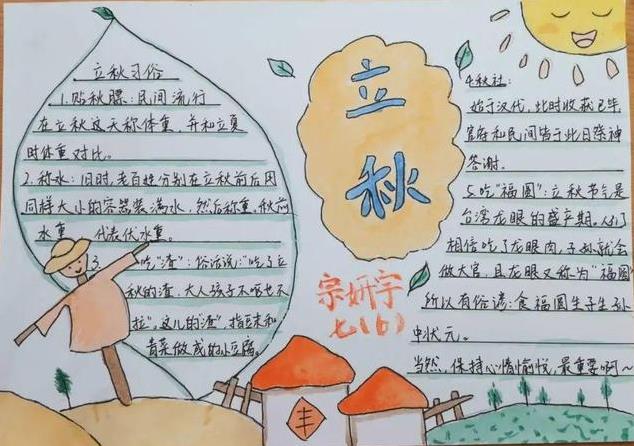 立秋习俗
1.贴秋膘：民间流行
在立秋这天称体重，并和立夏
时体重对比。
2.称水：旧时，老百姓分别在立秋前后因
同样大小的容器装满水，然后称重，秋前
水重 代表伏水重。
3. 吃"渣"：俗话说："吃了立
秋的渣，大人孩子不呕也不
拉"，这儿的"渣"，指豆末和
青菜做成的小豆腐。
立
秋
宗妍宇
七(6)
丰
4.秋社：
始于汉代，此时收获已毕
官府和民间皆于此日祭神
答谢。
5.吃"福圆"：立秋节气是
台湾龙眼的盛产期。人们
相信吃了龙眼肉，子孙就会
做大官，且龙眼又称为"福圆
所以有俗谚：食福圆生子生孙
中状元。
当然，保持心情愉悦，最重要啊～